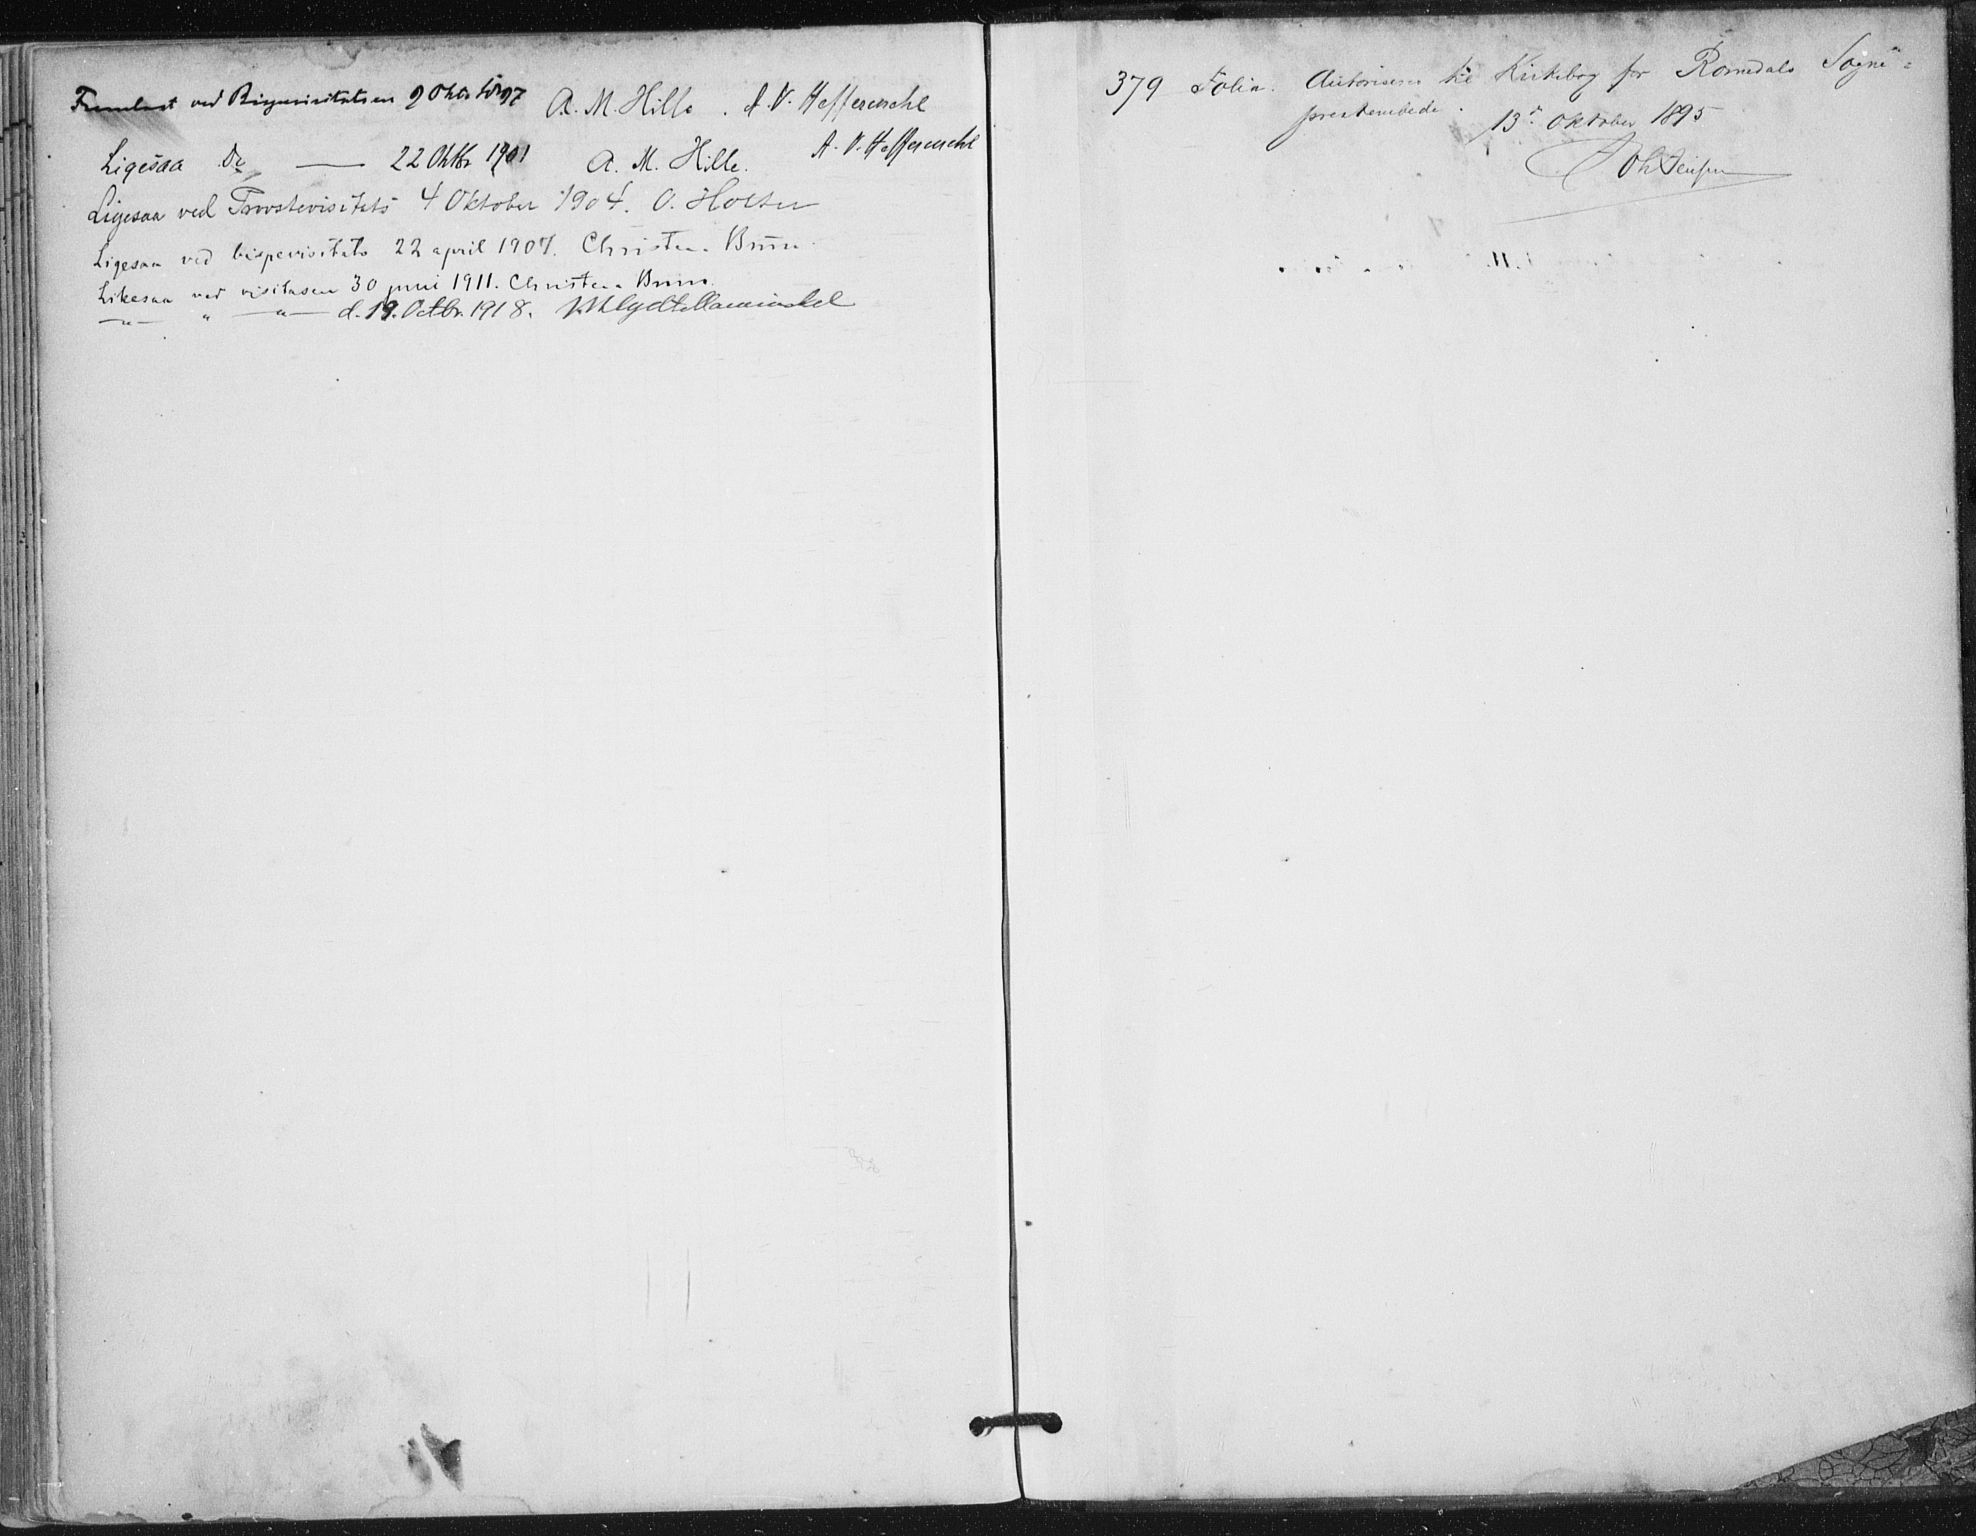 Fremlagt ved Bispevisitatsen 9 Oktober 97 A. M. Hille. A. V. Heffermehl
Ligesaa Do — 22 Oktbr 1901 A. M. Hille. A. V. Heffermehl
Ligesaa ved Provstevisitats 4 Oktober 1904. O. Holter
Ligesaa ved bispevisitats 22 april 1907. Christen Brun.
Likesaa ved visitasen 30 juni 1911. Christen Brun.
—"— " —"— d. 19. Octbr. 1918.
379 Folia. Autoriseres til Kirkebog for Romedals Sogne=
prestembede.
13de Oktober 1895